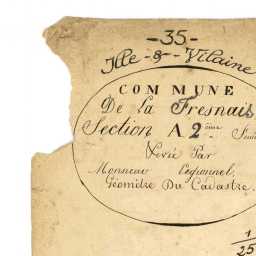 -35-
Ille-&-Vilaine
COMMUNE
De la Fresnais
Section A 2ème Feuil
Levée Par
Monsieur
Géomètre Du Cadastre.
1
25